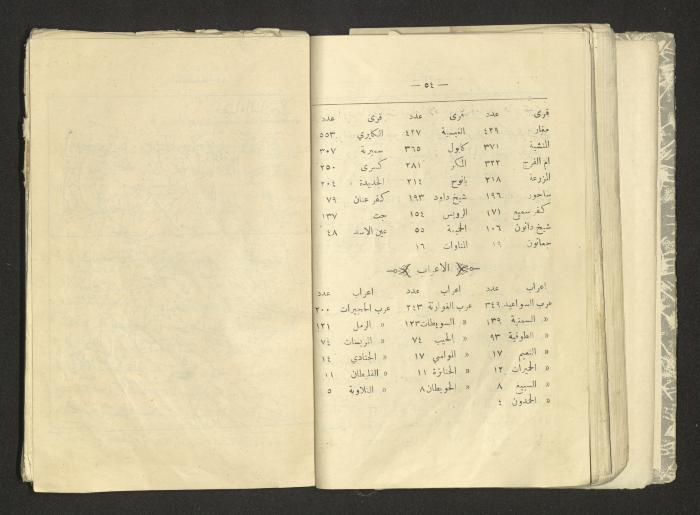 — ٥٤ —
قرى عدد قرى عدد قرى عدد
مغار ٤٢٩ العبسية ٤٢٧ الكابري ٥٥٣
المنشية ٣٧١ كابول ٣٦٥ سميرية ٣٠٧
ام الفرج ٣٢٢ المكر ٢٨١ كسرى ٢٥٠
المزرعة ٢١٨ يانوح ٢١٤ الجديدة ٢٠٤
ساجور ١٩٦ شيخ داود ١٩٣ كفر عنان ٧٩
كفر سميع ١٧١ الرويس ١٥٤ جت ١٣٧
شيخ دانون ١٠٦ ٥٥ عين الاسد ٤٨
جعاثون ١٩ المناوات ١٦
الاعراب
اعراب عدد اعراب عدد اعراب عدد
عرب السواعيد ٣٤٩ عرب الغوارنة ٢٤٣ عرب الحجيرات ٢٠٠
« السمنية ١٣٩ « السويطات ١٢٣ « الرمل ١٢١
« الطوقية ٩٣ « الحيب ٧٤ « ٧٤
« النعيم ١٧ « المواسي ١٧ « الجنادي ١٤
« ١٢ « الخنازرة ١١ « القليطات ١١
« السبيع ٨ « الحويطات ٨ « التلاوية ٥
« الحمدون ٤